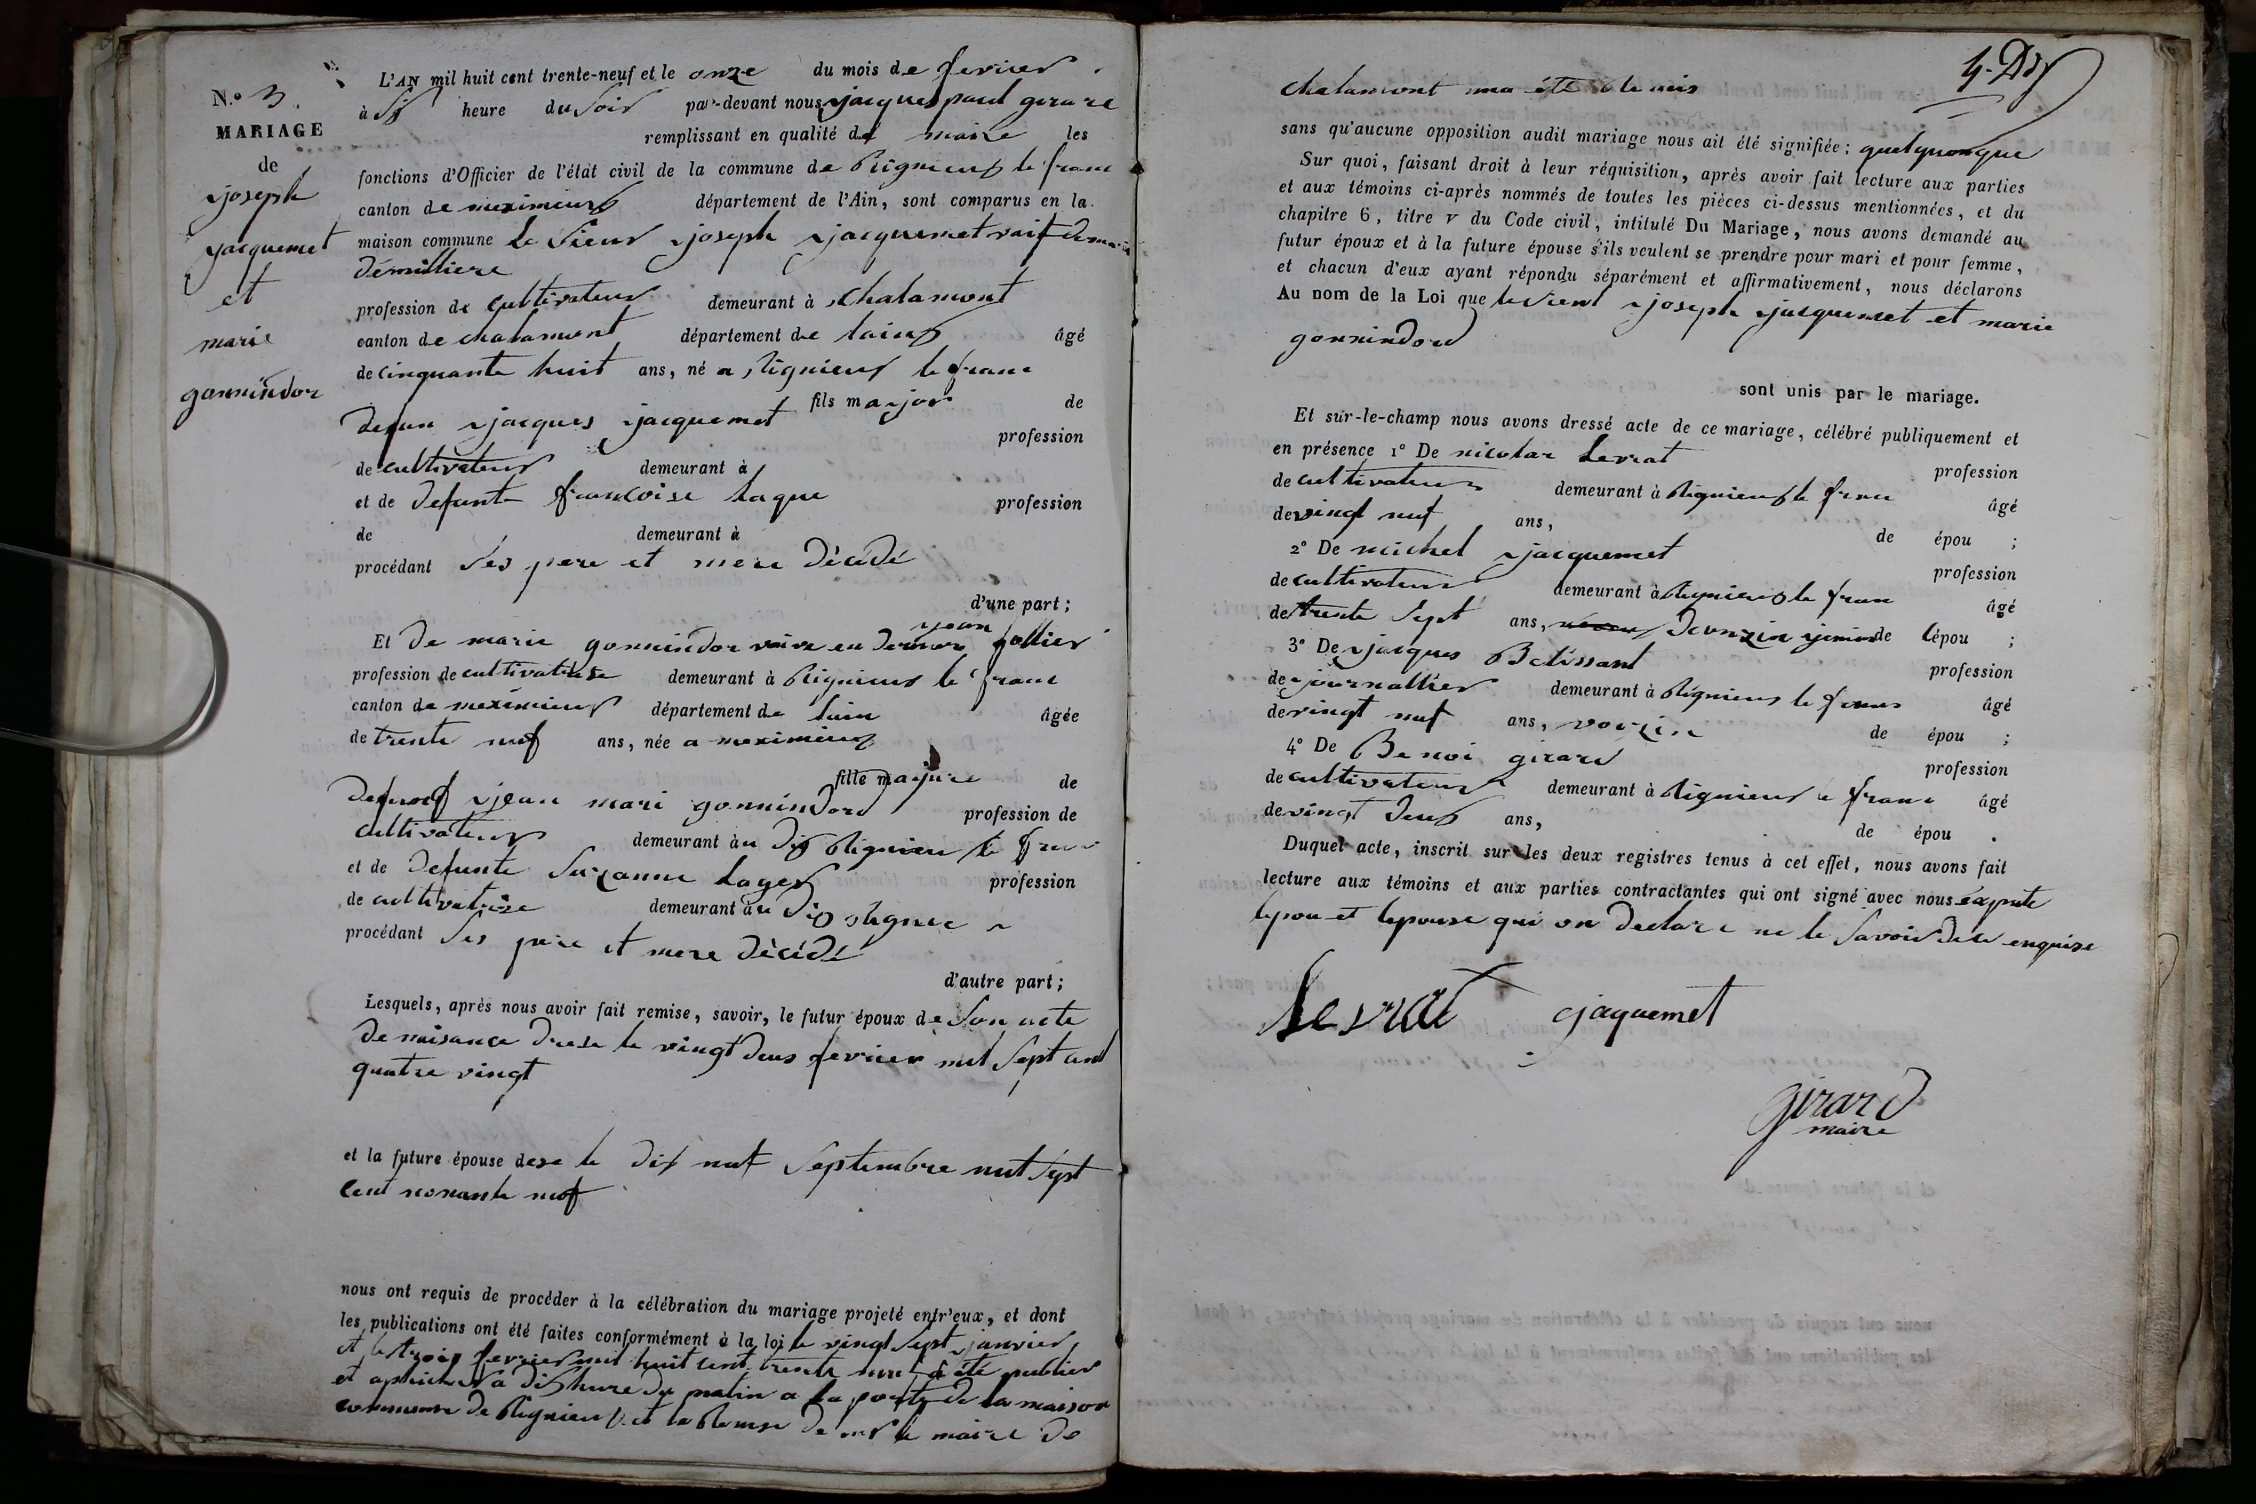 N.o 3
MARIAGE
de
joseph
jacquemet
et
marie
gonnindor
L'AN mil huit cent trente-neuf et le onze du mois de fevrier
à Six heure du Soir par-devant nous jacques paul girard
remplissant en qualité de maire les
fonctions d'Officier de l'état civil de la commune de Rignieux le franc
canton de meximieux département de l'Ain, sont comparus en la
maison commune Le Sieur joseph jacquemet vaif de marie
démilliere
profession de cultivateur demeurant à Chalamont
canton de chalamont département de lain âgé
de cinquante huit ans, né a rignieux le franc
fils major de
defun jacques jacquemet profession
de cultivateur demeurant à
et de defunte francoise laque profession
de demeurant à
procédant Ses pere et mere décédé
d'une part;
jean
Et de marie gonnindor vaive en gollier
profession de cultivatrise demeurant à Rignieux le franc
canton de meximieux département de lain âgée
de trente neuf ans, née a meximieux
fille majure de
defunt jean mari gonnindord profession de
cultivateur demeurant au dis Rignieu le franc
et de defunte Suzanne lager profession
de cultivatrise demeurant au dis
procédant Ses pere et mere décédé
d'autre part;
Lesquels, après nous avoir fait remise, savoir, le futur époux de Son acte
de naisance drese le vingt deux fevrier mil Sept cent
quatre vingt
et la future épouse dese le dix neuf Septembre mil Sept
cent nonante neuf
nous ont requis de procéder à la célébration du mariage projeté entr'eux, et dont
les publications ont été faites conformément à la loi le vingt Sept janvier
et le trois fevrier mil huit cent trente neuf a été publier
et aficher a dix hure du matin a la porte de la maison
commune de Rignieux et de le maire de
chalamont
sans qu'aucune opposition audit mariage nous ait été signifiée; quelquonque
Sur quoi, faisant droit à leur réquisition, après avoir fait lecture aux parties
et aux témoins ci-après nommés de toutes les pièces ci-dessus mentionnées, et du
chapitre 6, titre v du Code civil, intitulé Du Mariage, nous avons demandé au
futur époux et à la future épouse s'ils veulent se prendre pour mari et pour femme,
et chacun d'eux ayant répondu séparément et affirmativement, nous déclarons
Au nom de la Loi que le Sieur joseph jacquemet et marie
gonnindord
sont unis par le mariage.
Et sur-le-champ nous avons dressé acte de ce mariage, célébré publiquement et
en présence 1° De nicolas Levrat profession
de cultivateur demeurant à Rignieux le franc âgé
de vingt neuf ans, de épou ;
2° De michel jacquemet profession
de cultivateur demeurant à Rignieux le franc âgé
de trente Sept ans, de lépou ;
3° De jacques Belissant profession
de journallier demeurant à Rignieux le franc âgé
de vingt neuf ans, voizin de épou ;
4° De Benoi girard profession
de cultivateur demeurant à Rignieux le franc âgé
de vingt deux ans, de épou .
Duquel acte, inscrit sur les deux registres tenus à cet effet, nous avons fait
lecture aux témoins et aux parties contractantes qui ont signé avec nous
lepou et lepouse qui on declare ne le Savoir de ce enquise
Levrat
jaquemet
girard
maire